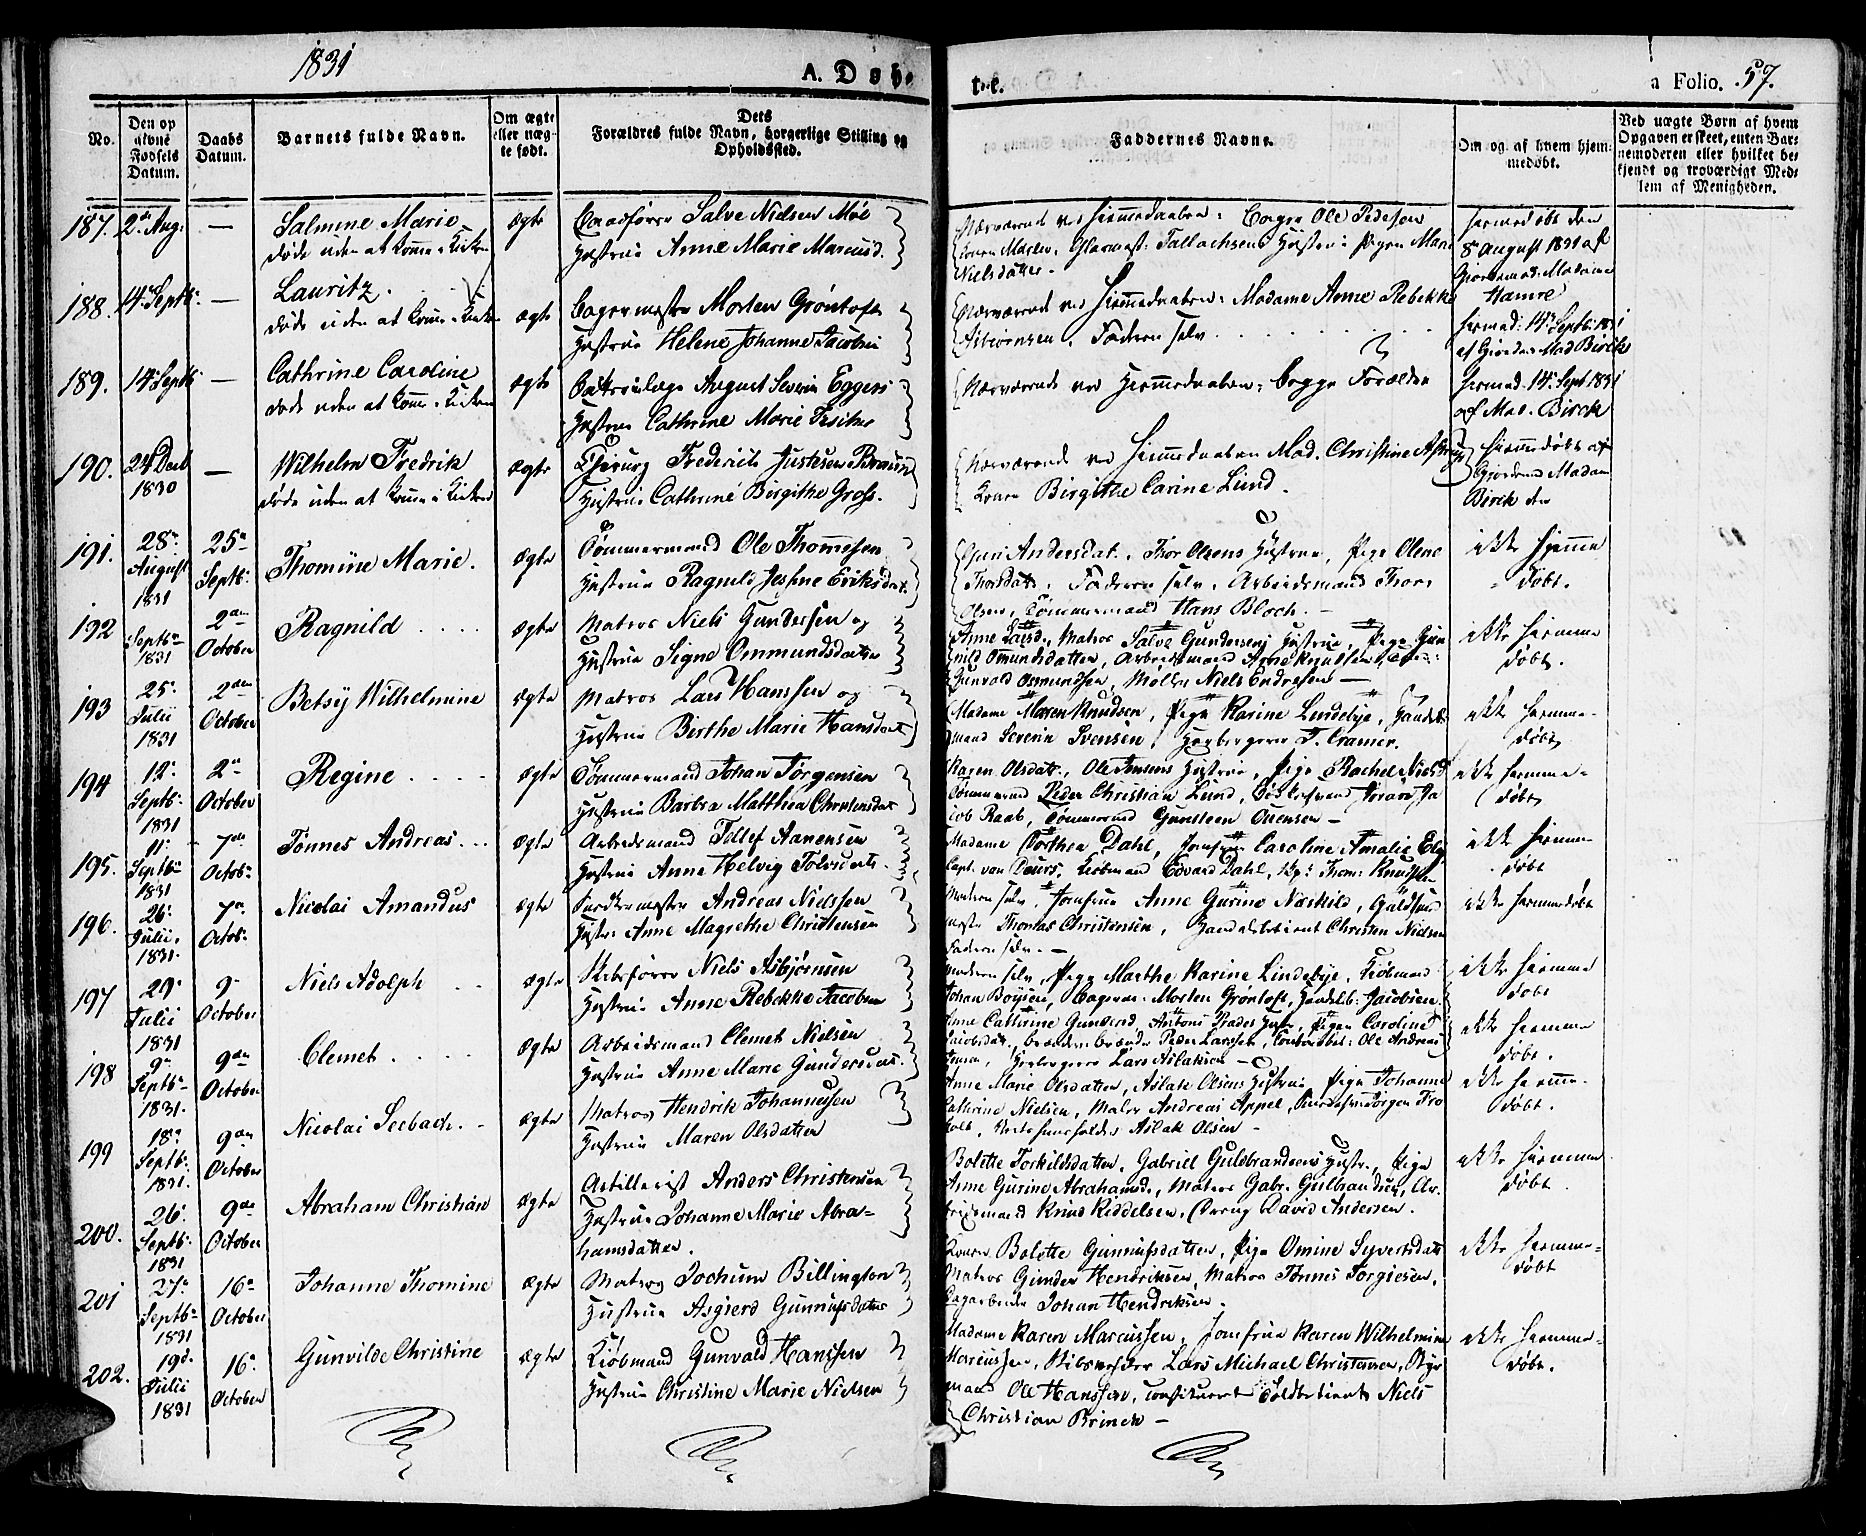 1831
A. Døb-
te.
a Folio. 57.
No.
Den op
givne
Fødsels
Datum.
Daabs
Datum.
Barnets fulde Navn.
Om ægte
eller uæg-
te født.
Dets
Forældres fulde Navn, borgerlige Stilling og
Opholdssted.
Faddernes Navne.
Om og af hvem hjem-
medøbt.
Ved uægte Børn af hvem
Opgaven er skeet, enten Bar-
nemoderen eller hvilket be-
kjendt og troværdigt Med-
lem af Menigheden.
187. 2den Aug: — Salmine Marie
døde uden at komme i Kirken
ægte
Salve Nielsen Møe
Hustrue Anne Marie Marcusd.
Nærværende ved Hiemmedaaben: Ole Pedersen
Konen Maren, Tallachsens Hustrue Pigen Mari
Nielsdatter.
hiemmedøbt den
8de August 1831 af
Giordemod: Madame
Hamre
188. 14de Septb: — Lauritz
døde uden at komme i Kirken
ægte
Bagermester Morten Grøntoft
Hustrue Helene Johanne Jacobsen
Nærværende ved Hiemmedaaben: Madame Anne Rebekke
Asbiørnsen, Faderen selv
hiemmed: 14de Septb: 1831
af Giordem: Mad Birck
189. 14de Septb: — Cathrine Caroline
døde uden at komme i Kirken
ægte
August Severin Eggers
Hustrue Cathrine Marie
Nærværende ved Hiemmedaaben: begge Forældre
hiemmed. 14de Sept 1831
af Mad. Birck
190. 24 Decb 1830 — Wilhelm Fredrik
døde uden at komme i Kirken
ægte
Chirurg Frederich Justesen Bruun
Hustrue Cathrine Birgithe Gross.
Nærværende ved Hiemmedaaben Mad. Christine
Konen Birgithe Carine Lund.
Hiemmedøbt af
Giordemo Madam
Birck den
191. 28de August 1831 25de Septb: Thomine Marie. ægte
Tømmermand Ole Thommesen
Hustrue Ragnild Eriksdat.
Andersdat., Thor Olsens Hustrue, Pige Olene
Thorsdat., Faderen selv, Arbeidsmand Thor
Olsen, Tømmermand Hans Bloch. —
ikke hjemme
døbt.
192 Septbr 1831 2den October Ragnild ægte
Matros Niels Gundersen og
Hustrue Signe Ommundsdatter
Anne Larsd., Matros Salve Gundersens Hustrue, Pige Gun
nild Omundsdatter, Arbeidsmand
Gunvald Osmundsen, Møller Niels Endresen —
ikke hiemme
døbt.
193 25de Julii 1831 2den October Betsÿ Wilhelmine ægte
Matros Lars Hanssen og
Hustrue Berthe Marie Hansdat
Madame Maren Knudsen, Pige Karine Lindebye, Handels
mand Severin Svensen, Herbergerer T. Cramer.
ikke hiemme-
døbt
194 12te Septb: 1831 2den October Regine ægte
Tømmermand Johan Jørgensen
Hustrue Barbra Matthea Christensdat
Karen Olsdatt., Ole Jensens Hustrue, Pige Rachel Nielsd
Tømmermand Peder Christian Lund,
Raab, Tømmermand Gunsteen Ouensen —
ikke hiemme-
døbt
195. 11te Septbr 1831 7de Octobr Tønnes Andreas ægte
Arbeidsmand Tellef Aanensen
Hustrue Anne Helvig
Madame Dorthea Dahl, Jomfrue Caroline Amalie
Capt. von Deurs, Kiøbmand Edvard Dahl, Thom: Knudsen
ikke hiemme
døbt
196. 26de Julii, 1831. 7de Octob: Nicolai Amandus ægte
Andreas Nielssen
Hustr: Anne Magrethe Christensen
Moderen selv, Jomfrue Anne Gurine Næskild, Guldsmed
mester Thomas Christensen, Handelsbetient Christen Nielsen
Faderen selv. —
ikke hiemmedøbt
197 29de Julii 1831 9de October Niels Adolph ægte
Skibsfører Niels Asbjørnsen
Hustrue Anne Rebekke Jacobsen
Moderen selv, Pige Marthe Karine Lindebye, Kiøbmand
Johan Boÿsen, Bagerm: Morten Grøntoft, Handelsb: Jacobsen.
ikke hiemme
døbt
198 9de Septbr 1831. 9de October Clemet ægte
Arbeidsmand Clemet Nielsen
Hustrue Anne Marie Gundersdat.
Anne Cathrine Gundersd, Hustr, Pigen Caroline
Jacobsdat, Peder Larssen, Ole Andreas
Herbergerer Lars Aslaksen —
ikke hiemme
døbt.
199 18de Septb: 1831. 9den October Nicolai Seebach. ægte
Matros Hendrik Johannesen
Hustrue Maren Olsdatter
Anne Marie Olsdatter, Aslak Olsens Hustrue, Pige Johanne
Cathrine Nielsen, Maler Andreas Appel, Jørgen
Aslak Olsen —
ikke hiemme-
døbt.
200. 26de Septb: 1831 9de October Abraham Christian ægte
Artillerist Anders Christensen
Hustrue Johanne Marie Abra-
hamsdatter.
Bolette Torkildsdatter, Gabriel Guldbrandsens Hustr., Pige
Anne Gurine Abrahamsd., Matros Gabr. Ar-
beidsmand Knud Kiddelsen, David Andersen.
ikke hiemme
døbt.
201 27de Septbr 1831 16de October Johanne Thomine ægte
Matros Jochum Billington
Hustrue Asgierd Gunnufsdatter
Konen Bolette Gunnufsdatter, Pige Omine Syvertsdatt
Matros Gunder Hendriksen, Matros Tønnes Torgiesen,
Johan Hendriksen.
ikke hiemme-
døbt
202. 19de Julii 1831 16de October Gunvilde Christine ægte
Kiøbmand Gunvald Hanssen
Hustrue Christine Marie Nielsen
Madame Karen Marcussen, Jomfrue Karen Wilhelmine
Marcussen, Lars Michael Christensen,
mand Ole Hanssen, constitueret Toldbetient Niels
Christian Brinck —
ikke hiemme-
døbt.